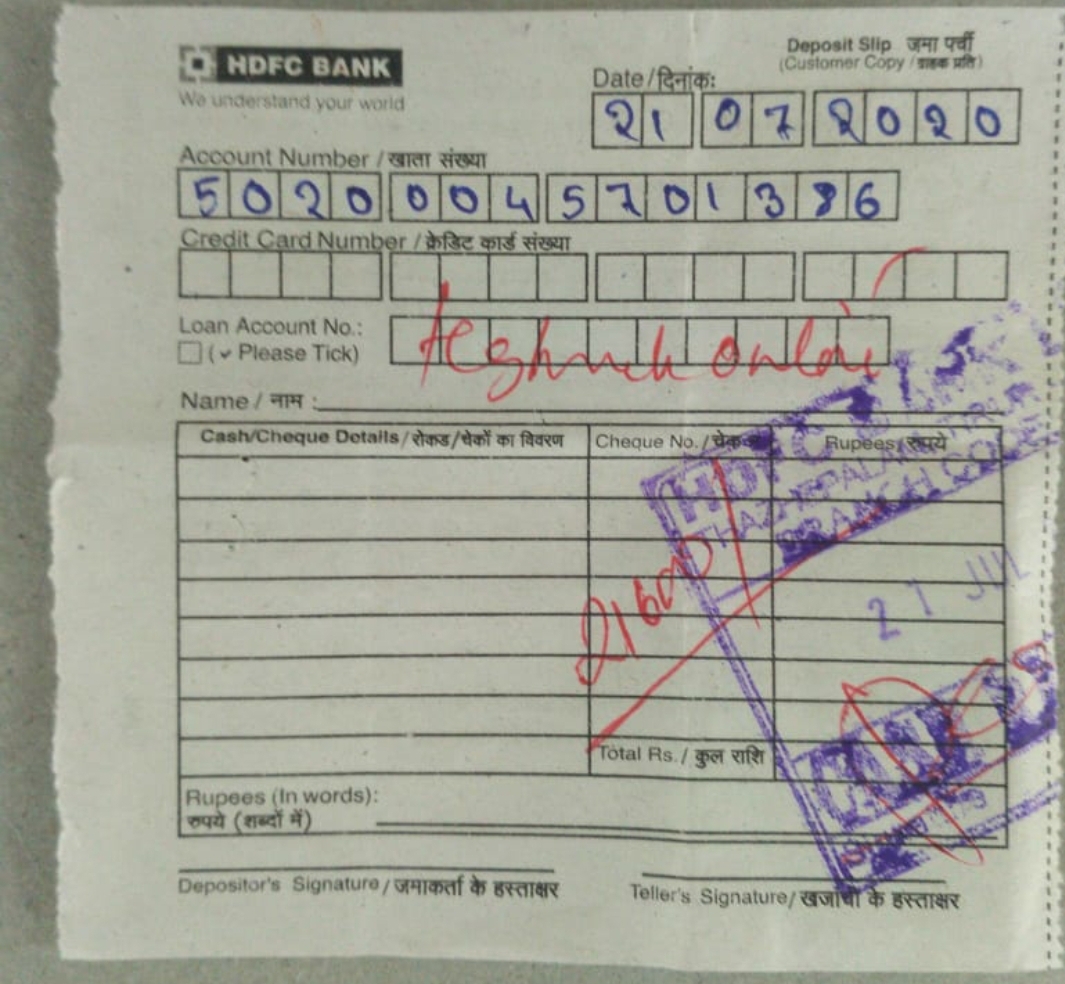 HDFC BANK
We understand your world
Deposit Slip जमा पर्ची
(Customer Copy / ग्राहक प्रति)
Date / दिनांक:
21 07 2020
Account Number / खाता संख्या
5020 004 5701386
Credit Card Number / क्रेडिट कार्ड संख्या
Loan Account No.:
(✓ Please Tick)
Name / नाम :
Cash/Cheque Details / रोकड / चेकों का विवरण Cheque No. / Rupees / रुपये
HDFC BANK
BRANCH CODE
21 JUL
Total Rs. / कुल राशि
Rupees (In words):
रुपये (शब्दों में)
Depositor's Signature / जमाकर्ता के हस्ताक्षर
Teller's Signature / खजांची के हस्ताक्षर